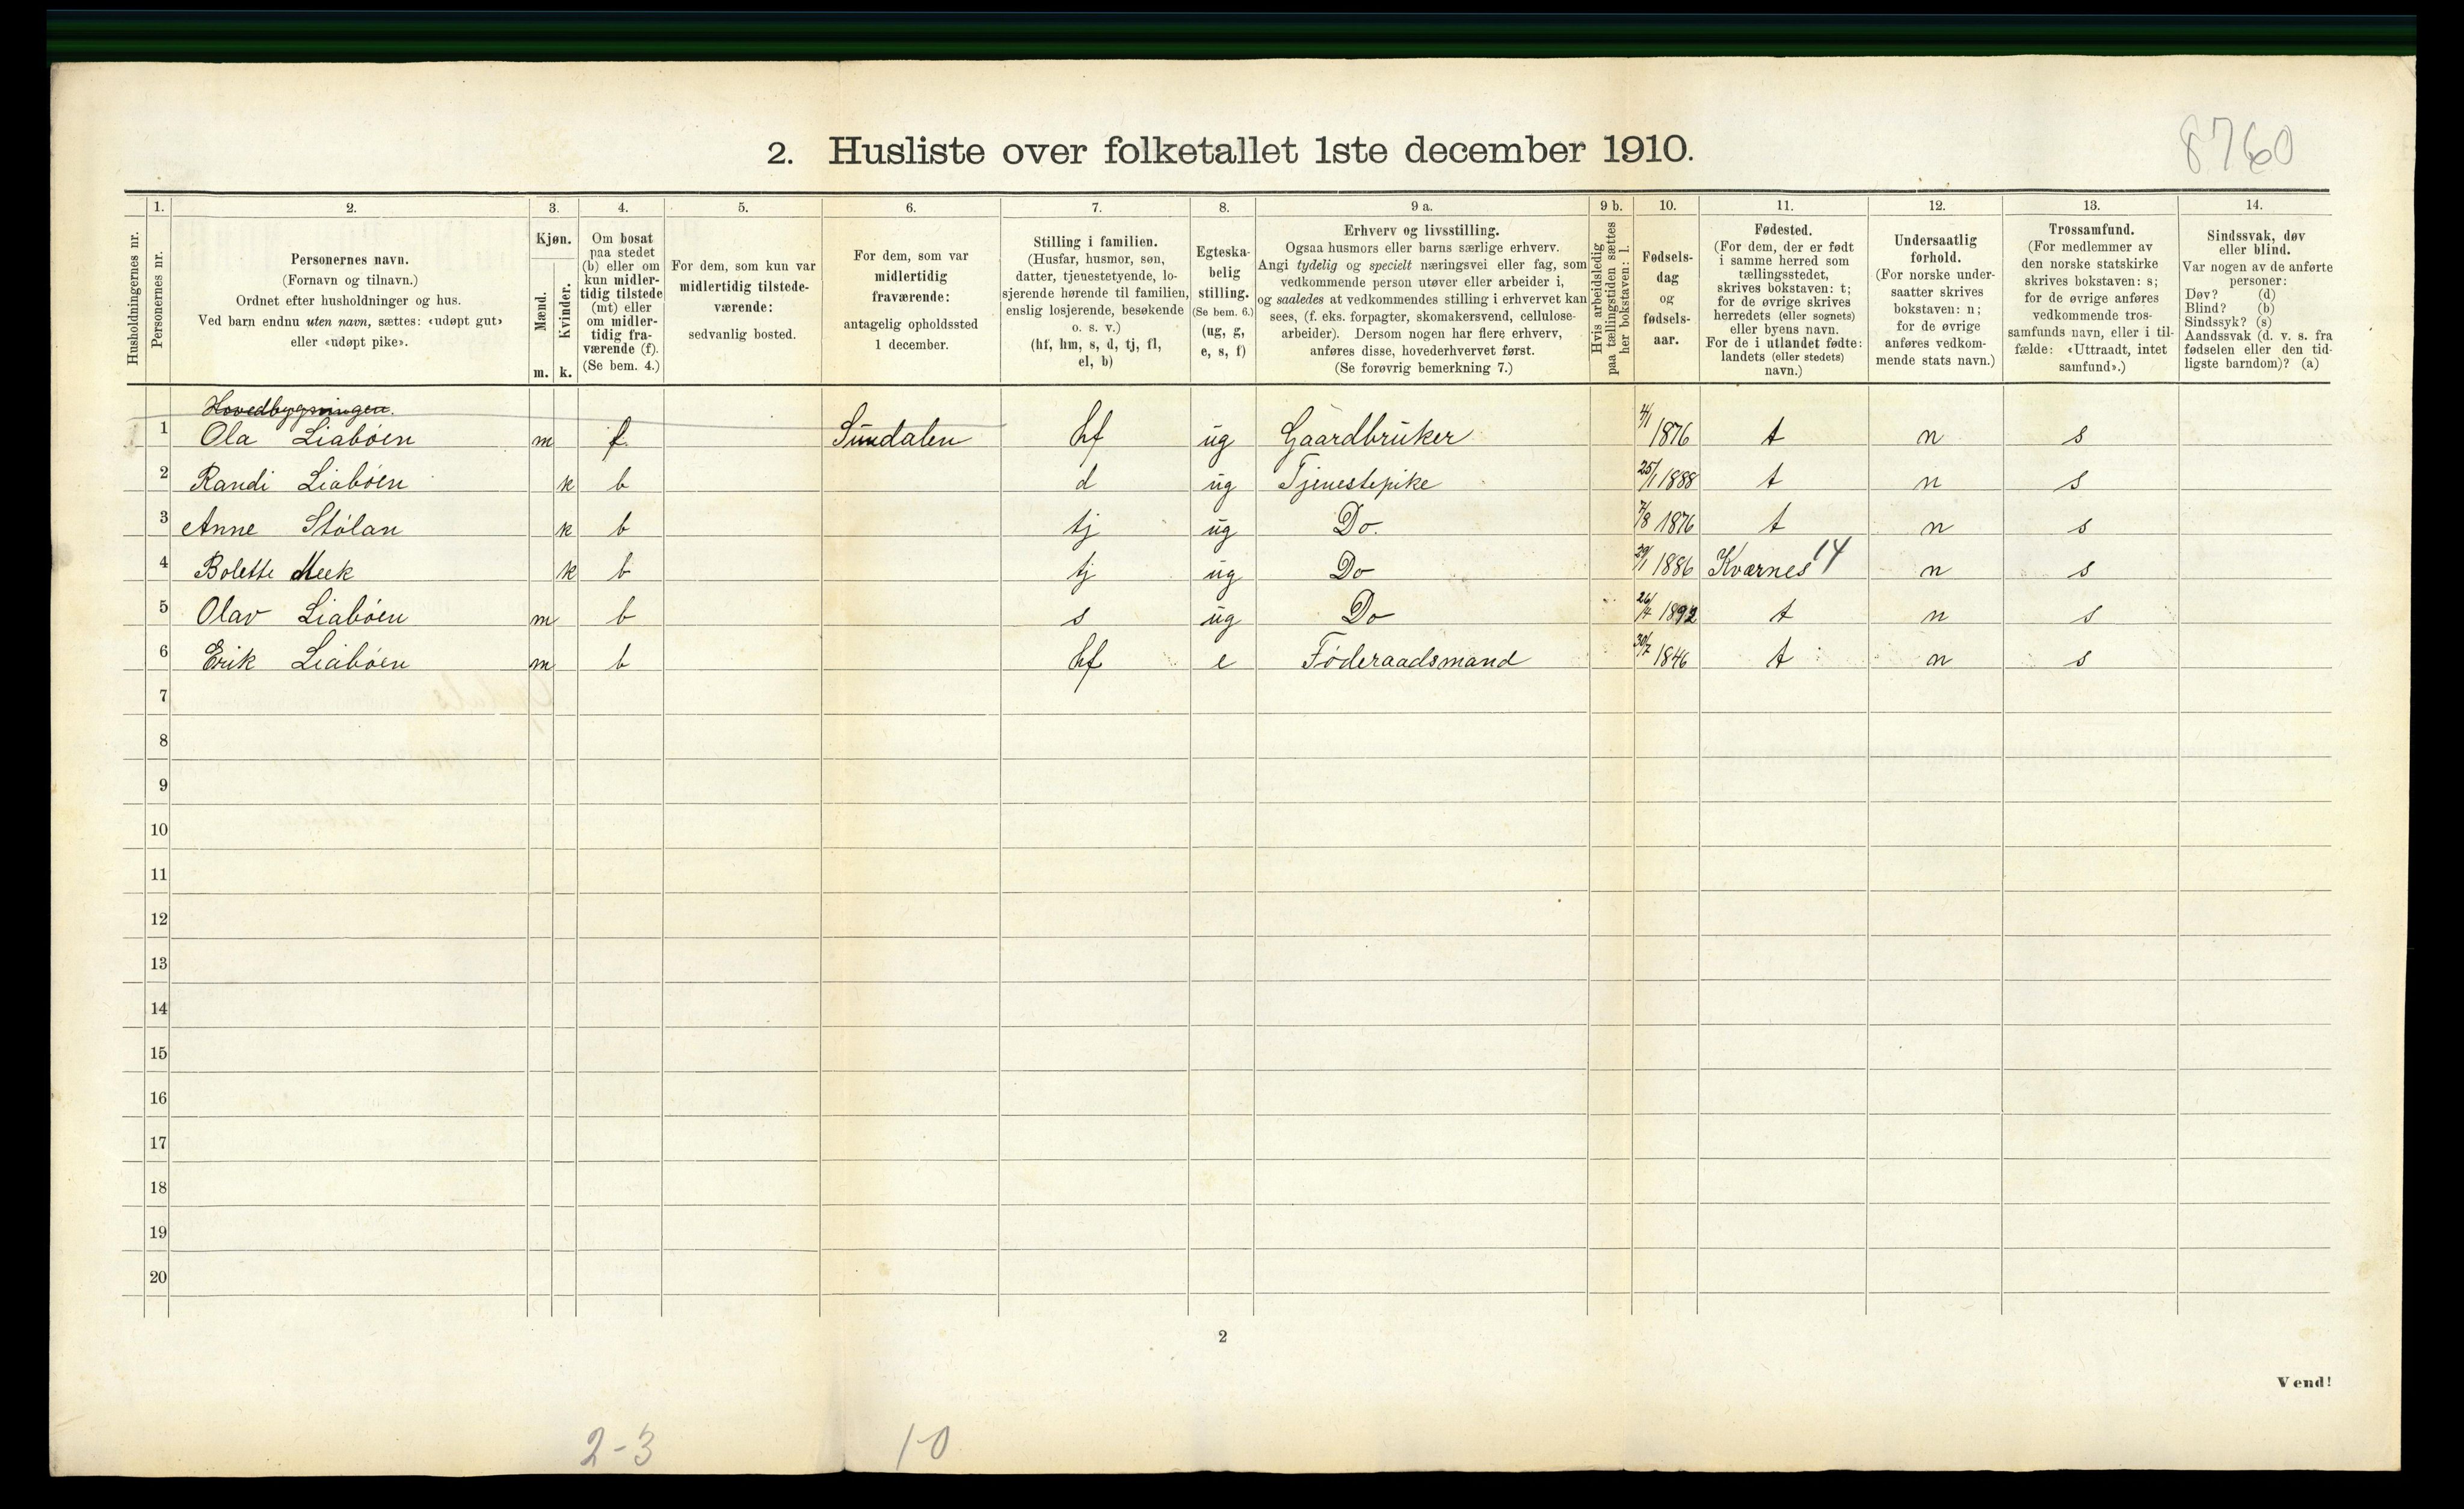 8760
2. Husliste over folketallet 1ste december 1910.
1. 2. 3. 4. 5. 6. 7. 8. 9 a. 9 b. 10. 11. 12. 13. 14.
Husholdningernes nr.
Personernes nr.
Personernes navn.
(Fornavn og tilnavn.)
Ordnet efter husholdninger og hus.
Ved barn endnu uten navn, sættes: «udøpt gut»
eller «udøpt pike».
Kjøn.
Mænd.
Kvinder.
m. k.
Om bosat
paa stedet
(b) eller om
kun midler-
tidig tilstede
(mt) eller
om midler-
tidig fra-
værende (f).
(Se bem. 4.)
For dem, som kun var
midlertidig tilstede-
værende:
sedvanlig bosted.
For dem, som var
midlertidig
fraværende:
antagelig opholdssted
1 december.
Stilling i familien.
(Husfar, husmor, søn,
datter, tjenestetyende, lo-
sjerende hørende til familien,
enslig losjerende, besøkende
o. s. v.)
(hf, hm, s, d, tj, fl,
el, b)
Egteska-
belig
stilling.
(Se bem. 6.)
(ug, g,
e, s, f)
Erhverv og livsstilling.
Ogsaa husmors eller barns særlige erhverv.
Angi tydelig og specielt næringsvei eller fag, som
vedkommende person utøver eller arbeider i,
og saaledes at vedkommendes stilling i erhvervet kan
sees, (f. eks. forpagter, skomakersvend, cellulose-
arbeider). Dersom nogen har flere erhverv,
anføres disse, hovederhvervet først.
(Se forøvrig bemerkning 7.)
Hvis arbeidsledig
paa tællingstiden sættes
her bokstaven: l.
Fødsels-
dag
og
fødsels-
aar.
Fødested.
(For dem, der er født
i samme herred som
tællingsstedet,
skrives bokstaven: t;
for de øvrige skrives
herredets (eller sognets)
eller byens navn.
For de i utlandet fødte:
landets (eller stedets)
navn.)
Undersaatlig
forhold.
(For norske under-
saatter skrives
bokstaven: n;
for de øvrige
anføres vedkom-
mende stats navn.)
Trossamfund.
(For medlemmer av
den norske statskirke
skrives bokstaven: s;
for de øvrige anføres
vedkommende tros-
samfunds navn, eller i til-
fælde: «Uttraadt, intet
samfund».)
Sindssvak, døv
eller blind.
Var nogen av de anførte
personer:
Døv? (d)
Blind? (b)
Sindssyk? (s)
Aandssvak (d. v. s. fra
fødselen eller den tid-
ligste barndom)? (a)
Hovedbygningen.
1 Ola Liabøen m f. Sundalen hf ug Gaardbruker 4/1 1876 t n s
2 Randi Liabøen k b d ug Tjenestepike 25/1 1888 t n s
3 Anne Stølan k b tj ug Do. 7/8 1876 t n s
4 Bolette Meek k b tj ug Do 29/1 1886 Kværnes 14 n s
5 Olav Liabøen m b s ug Do 26/4 1892 t n s
6 Erik Liabøen m b hf e Føderaadsmand 30/7 1846 t n s
7
8
9
10
11
12
13
14
15
16
17
18
19
20
2
Vend!
2-3 1-0